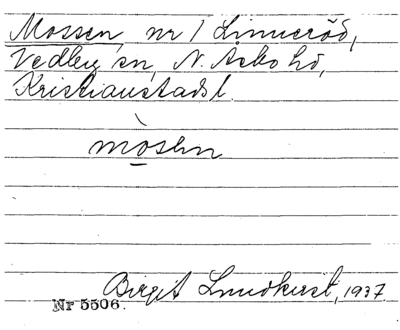 Mossen, nr 1 Linneröd,
Vedby sn, N. Åsbo hd,
Kristianstads l.
mòsen
Birgit Lundkvist, 1937
Nr 5506.